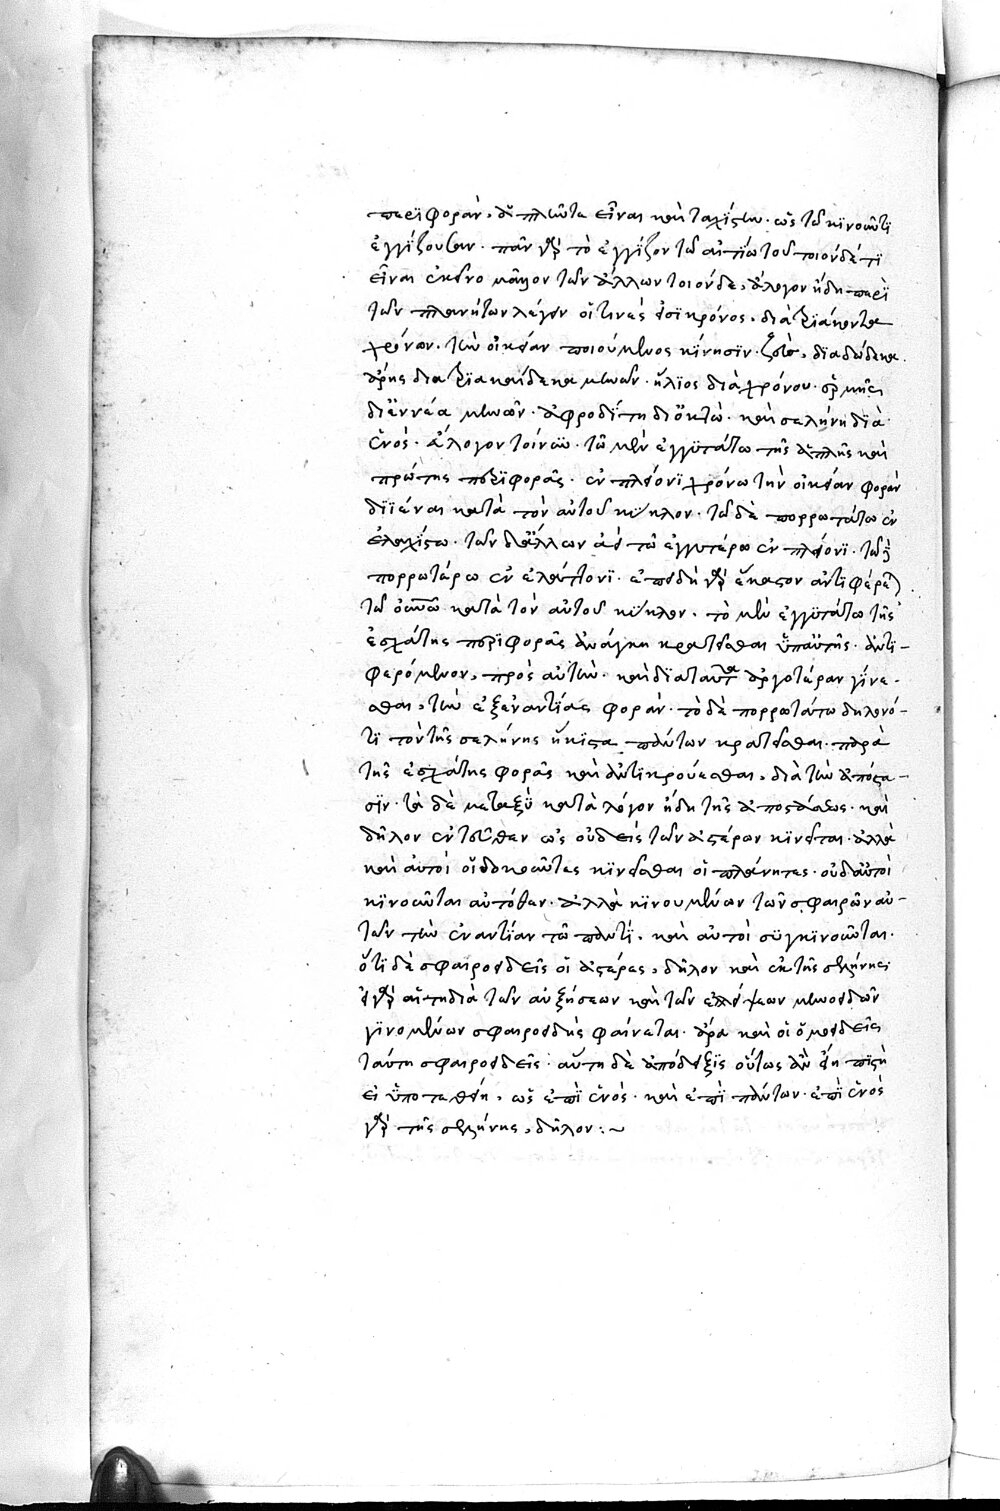 περιφορὰν, ἁπλῶτα εἶναι καὶ ταχίστην· ὡς τῷ κινοῦντι
ἐγγίζουσαν· πᾶν γὰρ τὸ ἐγγίζον τῷ αἰτίῳ τοῦ τοιοῦδέ τι
εἶναι ἐκεῖνο μᾶλλον τῶν ἄλλων τοιοῦδε, ἄλογον ἤδη περὶ
τῶν πλανήτων λέγειν οἵτινές εἰσι κρόνος, διὰ τριάκοντα
χρόνων, τὴν οἰκείαν ποιούμενος κίνησιν· ζεὺς, διὰ δώδεκα
ἄρης διὰ τριακαίδεκα μηνῶν· ἥλιος διὰ χρόνου· ἑρμῆς
δι' ἐννέα μηνῶν· ἀφροδίτη δι' ὀκτὼ· καὶ σελήνη διὰ
ἑνὸς· ἄλογον τοίνυν· τῶ μὲν ἐγγυτάτω τῆς ἁπλῆς καὶ
πρώτης περιφορᾶς· ἐν πλείονι χρόνω τὴν οἰκείαν φορὰν
διϊέναι κατὰ τὸν αὐτοῦ κύκλον· τῷ δὲ πορρωτάτω ἐν
ἐλαχίστω· τῶν δὲ ἄλλων ἀεὶ τῶ ἐγγυτέρω ἐν πλείονι· τῷ δὲ
πορρωτέρω ἐν ἐλάττονι· ἐπειδὴ γὰρ ἕκαστον ἀντιφέρεται
τῷ οὐρανῶ κατὰ τὸν αὐτοῦ κύκλον· τὸ μὲν ἐγγυτάτω τῆς
ἐσχάτης περιφορᾶς ἀνάγκη κρατεῖσθαι ὑπ' αὐτῆς· ἀντι-
φερόμενον, πρὸς αὐτὴν· καὶ διαταῦτα ἀργοτέραν γίνε-
σθαι, τὴν ἐξεναντίας φορὰν· τὸ δὲ πορρωτάτω δηλονό-
τι τὸν τῆς σελήνης ἥκιστα πάντων κρατεῖσθαι παρὰ
τῆς ἐσχάτης φορᾶς καὶ ἀντικρούεσθαι, διὰ τὴν ἀπόστα-
σιν· τὰ δὲ μεταξὺ κατὰ λόγον ἤδη τῆς ἀποστάσεως· καὶ
δῆλον ἐντεῦθεν ὡς οὐδεὶς τῶν ἀστέρων κινεῖται· ἀλλὰ
καὶ αὐτοὶ οἱ δοκοῦντες κινεῖσθαι οἱ πλάνητες· οὐδ' αὐτοὶ
κινοῦνται αὐτόθεν· ἀλλὰ κινουμένων τῶν σφαιρῶν αὐ-
τῶν τὴν ἐναντίαν τῶ παντὶ, καὶ αὐτοὶ συγκινοῦνται·
ὅτι δὲ σφαιροειδεῖς οἱ ἀστέρες, δῆλον καὶ ἐκ τῆς σελήνης
εἰ γὰρ αὕτη διὰ τῶν αὐξήσεων καὶ τῶν λείψεων μηνοειδῶν
γινομένων σφαιροειδὴς φαίνεται· ἄρα καὶ οἱ ὁμοειδεῖς
ταύτη σφαιροειδεῖς· αὕτη δὲ ἀπόδειξις οὕτως ἂν εἴη πιστὴ
εἰ ὑποτεθείη, ὡς ἐπὶ ἑνὸς· καὶ ἐπὶ πάντων· ἐπὶ ἑνὸς
γὰρ τῆς σελήνης, δῆλον: ~